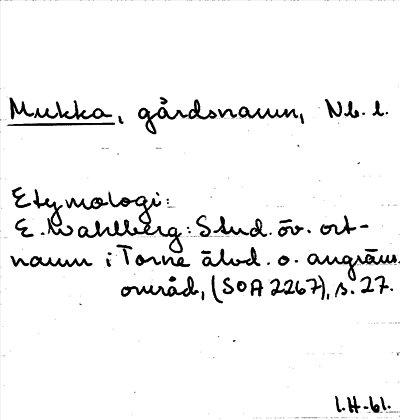 Mukka, gårdsnamn, Nb. l.
Etymologi:
E. Wahlberg: Stud. öv. ort-
namn i Torne älvd. o. angräns.
område, (SOA 2267), s. 27.
I.H-61.